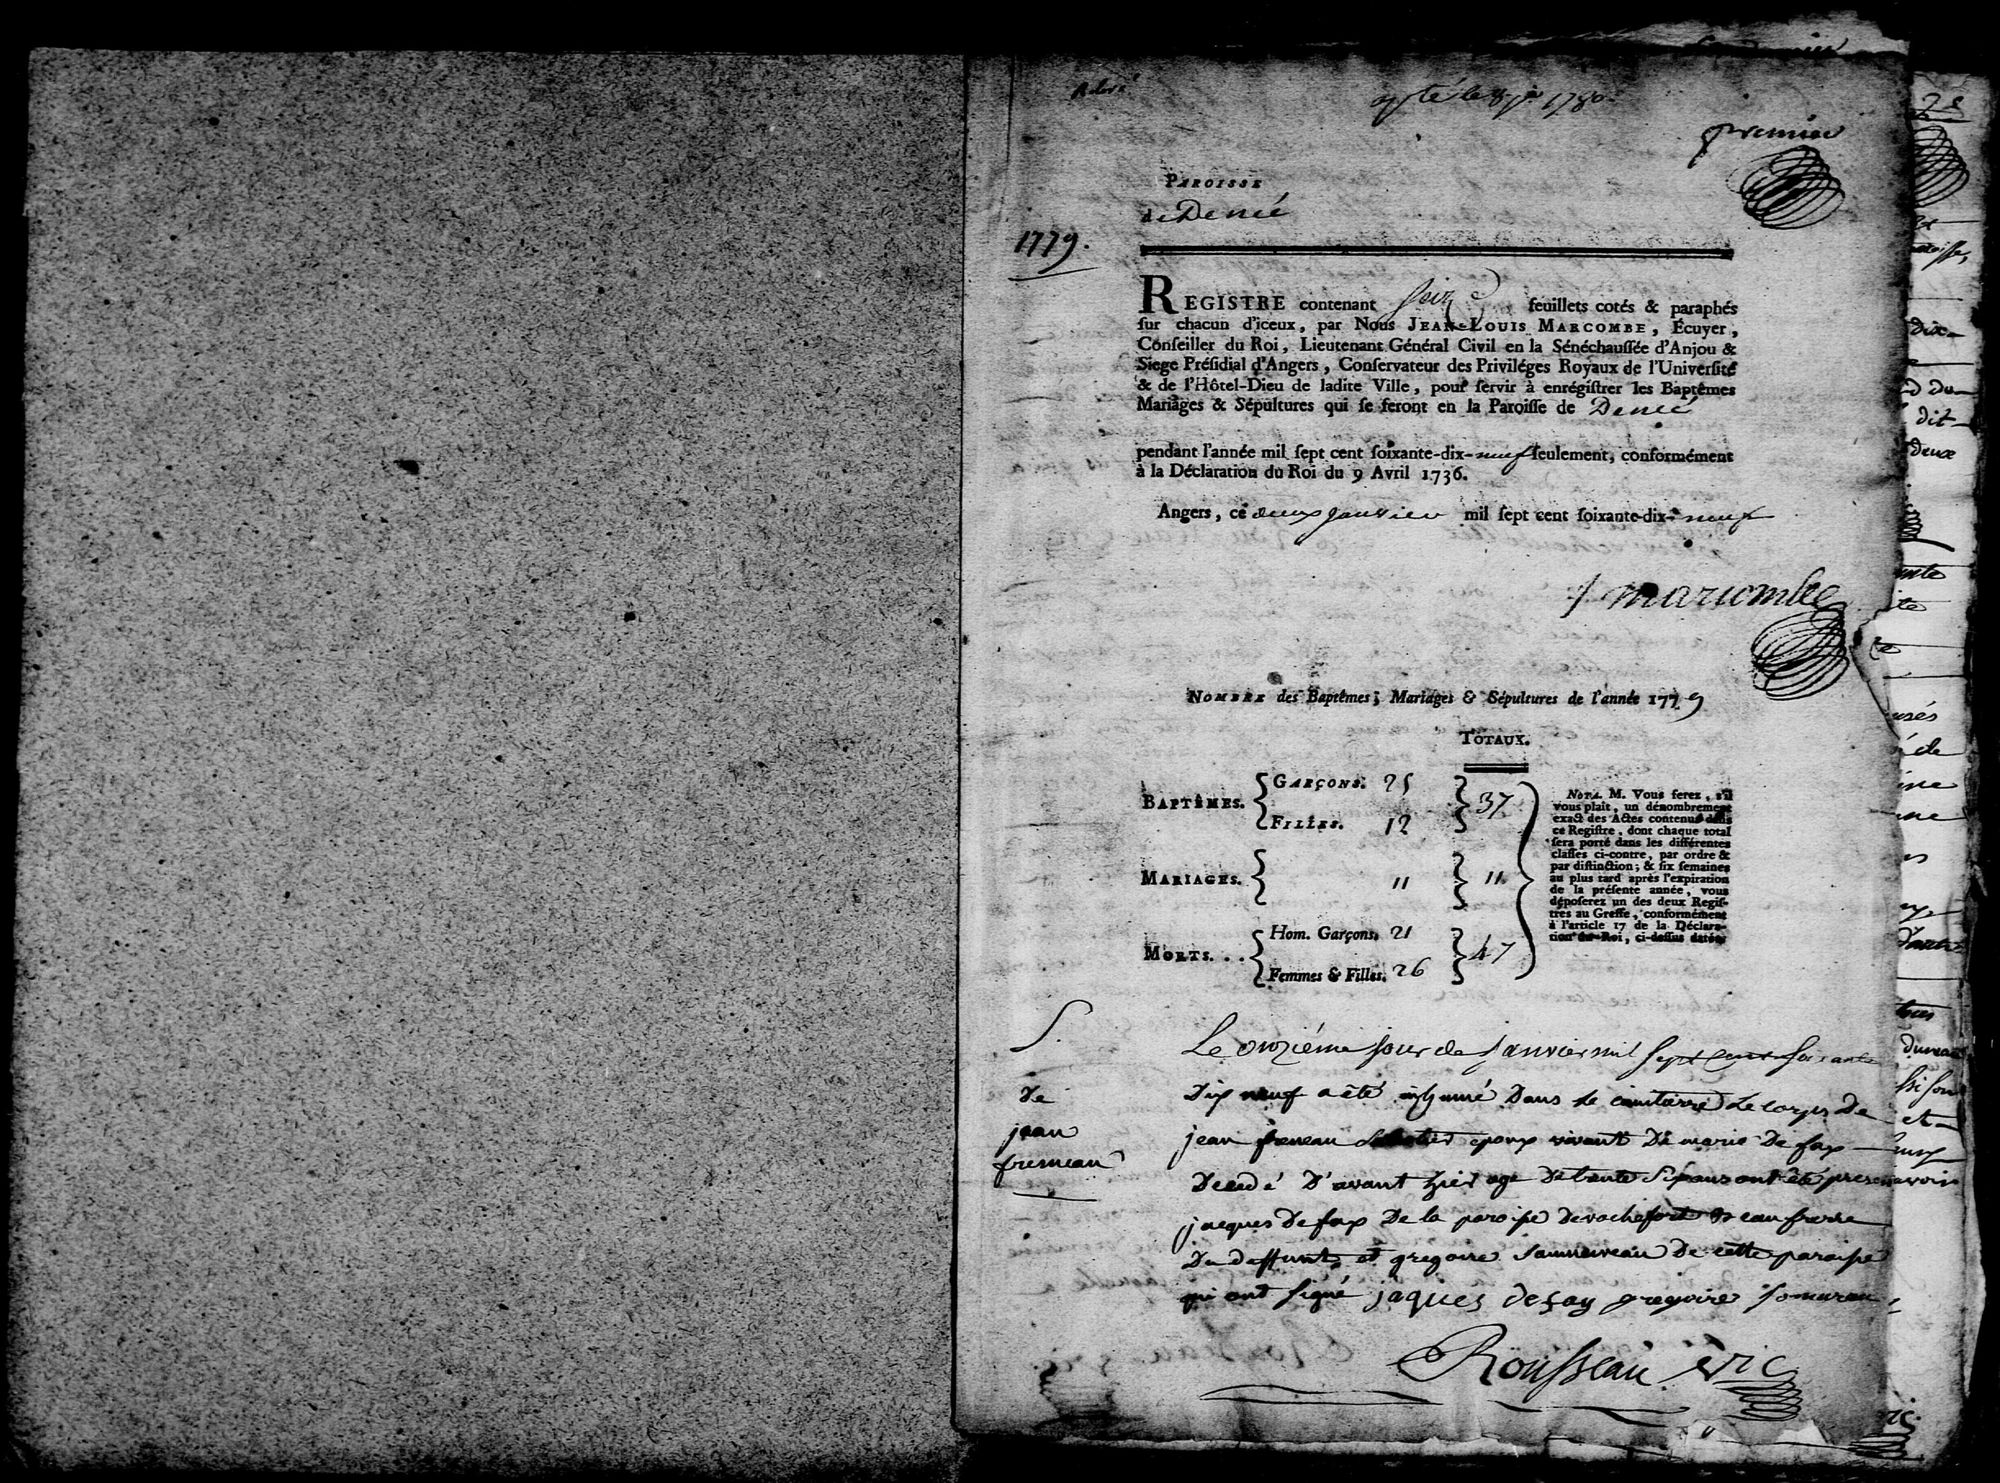 premier
PAROISSE
de Denée
1779.
REGISTRE contenant seize feuillets cotés & paraphés
sur chacun d'iceux, par Nous JEAN-LOUIS MARCOMBE, Écuyer,
Conseiller du Roi, Lieutenant Général Civil en la Sénéchaussée d'Anjou &
Siege Présidial d'Angers, Conservateur des Priviléges Royaux de l'Université
& de l'Hôtel-Dieu de ladite Ville, pour servir à enrégistrer les Baptêmes
Mariages & Sépultures qui se feront en la Paroisse de Denée
pendant l'année mil sept cent soixante-dix-neuf seulement, conformément
à la Déclaration du Roi du 9 Avril 1736.
Angers, ce deux janvier mil sept cent soixante-dix-neuf
marcombe
NOMBRE des Baptêmes, Mariages & Sépultures de l'année 1779
TOTAUX.
BAPTÊMES. GARÇONS. 25
FILLES. 12
37
MARIAGES. 11 11
MORTS... Hom. Garçons. 21
Femmes & Filles. 26
47
NOTA. M. Vous ferez, s'il
vous plait, un dénombrement
exact des Actes contenus dans
ce Registre, dont chaque total
sera porté dans les différentes
classes ci-contre, par ordre &
par distinction; & six semaines
au plus tard après l'expiration
de la présente année, vous
déposerez un des deux Regis-
tres au Greffe, conformément
à l'article 17 de la Déclara-
tion du Roi, ci-dessus datée
S.
de
jean
fremeau
Le onziéme jour de janvier mil sept cent soixante
dix neuf a été inhumé dans le cimtierre le corps de
jean époux vivant de marie de fay
décédé d'avant hier age de trente six ans ont été presens
jacques de fay de la paroisse de rochefort beau frere
du deffunt, et gregoire de cette paroisse
qui ont signé jaques defay gregoire somureau
Rousseau vic